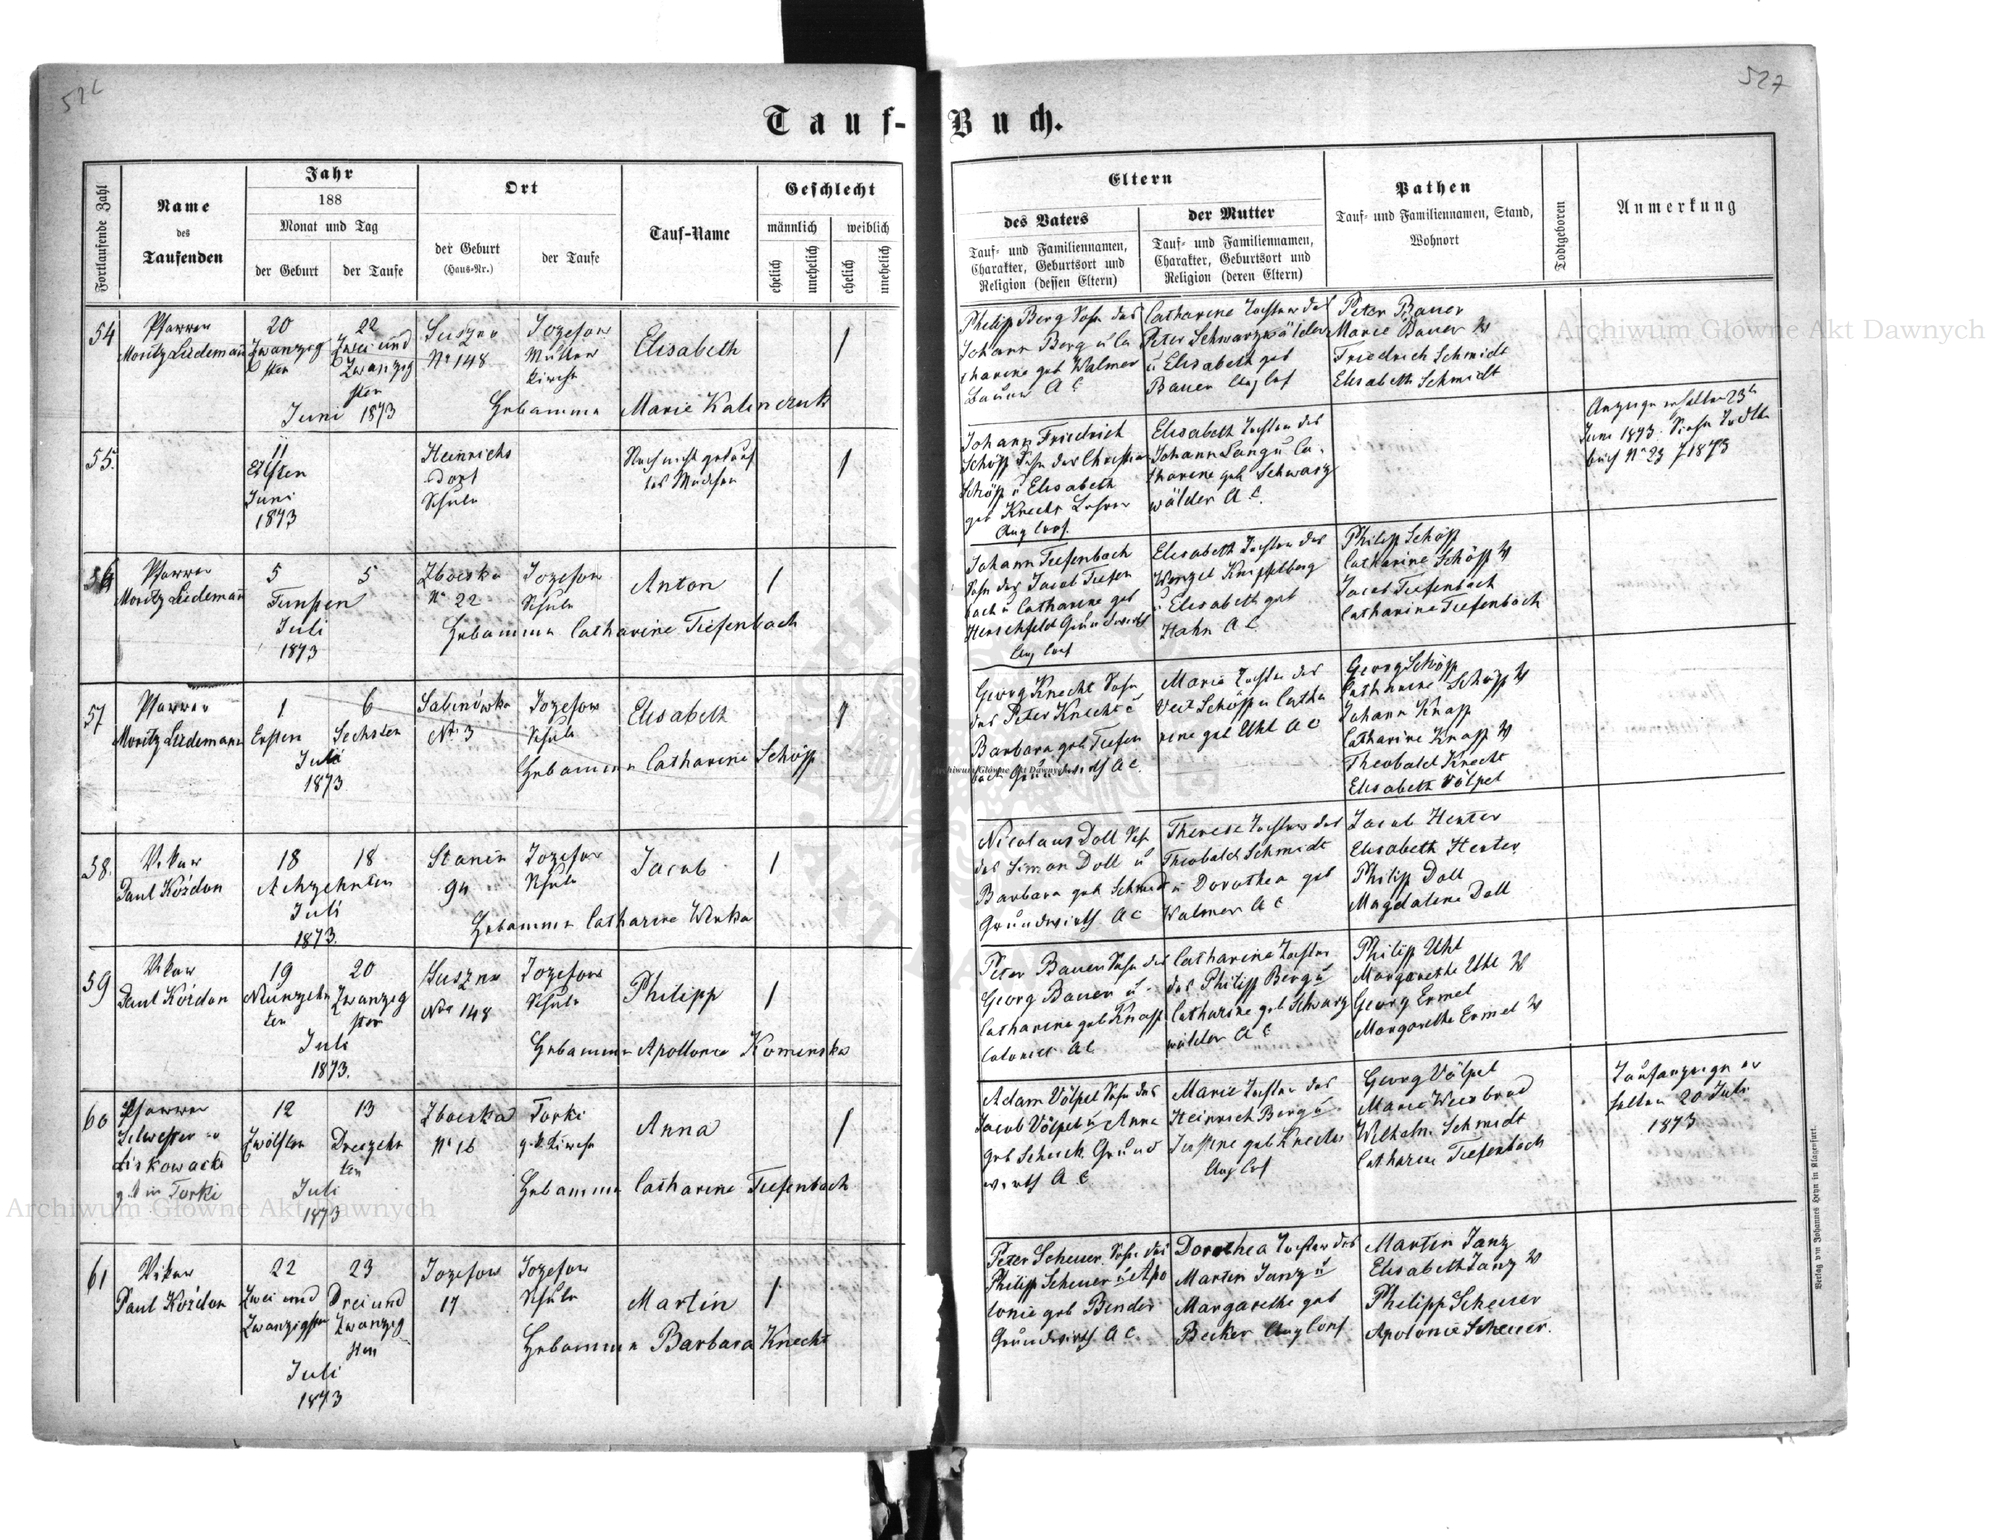 527
Tauf-Buch.
Fortlaufende Zahl
Name
des
Taufenden
Jahr
188
Monat und Tag
der Geburt
der Taufe
Ort
der Geburt
(Haus-Nr.)
der Taufe
Tauf-Name
Geschlecht
männlich
weiblich
ehelich
unehelich
ehelich
unehelich
Eltern
des Vaters
Tauf- und Familiennamen,
Charakter, Geburtsort und
Religion (dessen Eltern)
der Mutter
Tauf- und Familiennamen,
Charakter, Geburtsort und
Religion (deren Eltern)
Pathen
Tauf- und Familiennamen, Stand,
Wohnort
Todtgeboren
Anmerkung
54
Pfarrer
Moritz Liedemañ
20
Zwanzig
sten
22
Zwei und
Zwanzig
sten
Juni 1873
Suszno
No 148
Jozefow
Mutter
kirche
Elisabeth
1
Hebamme Marie Kalinczuk
Philipp Berg Sohn des
Johann Berg u Ca
tharine geb Walmer
Bauer A C
Catharine Tochter des
Peter Schwarzwälder
u Elisabeth geb
Bauer Aug Cof
Peter Bauer
Marie Bauer
Friedrich Schmidt
Elisabeth Schmidt
55.
11
Elften
Juni
1873
Heinrichs
dorf
Schule
Noch nicht getauf
tes Mädchen
1
Johann Friedrich
Schöpp Sohn des Christian
Schöpp u Elisabeth
geb Knecht Lehrer
Aug Conf.
Elisabeth Tochter des
Johann Lang u Ca-
tharine geb Schwarz
wälder A C.
Anzeige erhalten 23ten
Juni 1873. Siehe Todten
buch No 23 / 1873
56
Pfarrer
Moritz Liedemañ
5
5
Funften
Juli
1873
Zboiska
No 22
Jozefow
Schule
Anton
1
Hebamme Catharine Tiefenbach
Johann Tiefenbach
Sohn des Jacob Tiefen
bach u Catharine geb
Hirschfeld Grundwirth
Aug Conf
Elisabeth Tochter des
Wenzel Knipfelberg
u Elisabeth geb
Hahn A C
Philipp Schöpp
Catharine Schöpp
Jacob Tiefenbach
Catharine Tiefenbach
57
Pfarrer
Moritz Liedemann
1
Ersten
6
Sechsten
Juli
1873
Sabinówka
No 3
Jozefow
Schule
Elisabeth
1
Hebamme Catharine Schöpp
Georg Knecht Sohn
des Peter Knecht u
Barbara geb Tiefen
bach Grundwirth A C.
Marie Tochter des
Veit Schöpp u Catha
rine geb Uhl A C
Georg Schöpp
Catharine Schöpp
Johann Knapp
Catharine Knapp
Theobald Knecht
Elisabeth Völpel
58.
Vikar
Paul Koždon
18
18
Achzehnten
Juli
1873.
Stanin
94
Jozefow
Schule
Jacob
1
Hebamme Catharine Wirka
Nicolaus Doll Sohn
des Simon Doll u
Barbara geb Schmidt
Grundwirth A C
Therese Tochter des
Theobald Schmidt
u Dorothea geb
Walmer A C
Jacob Henter
Elisabeth Henter
Philipp Doll
Magdalena Doll
59
Vikar
Paul Koždon
19
Neunzehn
ten
20
Zwanzig
sten
Juli
1873.
Suszno
No 148
Jozefow
Schule
Philipp
1
Hebamme Apollonia Kominska
Peter Bauer Sohn des
Georg Bauer u
Catharine geb Knapp
Colonist A C
Catharine Tochter
des Philipp Berg u
Catharine geb Schwarz
wälder A C
Philipp Uhl
Margarethe Uhl
Georg Ermel
Margarethe Ermel
60
Pfarrer
Silvester
Liskowacki
g. k. in Torki
12
Zwölften
13
Dreizehn
ten
Juli
1873
Zboiska
No 16
Torki
g. k. Kirche
Anna
1
Hebamme Catharine Tiefenbach
Adam Völpel Sohn des
Jacob Völpel u Anna
geb Scheick Grund
wirth A C
Marie Tochter des
Heinrich Berg u
Justine geb Knecht
Aug Cof
Georg Völpel
Marie Weisbrod
Wilhelm Schmidt
Catharine Tiefenbach
Taufanzeige er
halten 20 Juli
1873
61
Vikar
Paul Koždon
22
Zwei und
Zwanzigsten
23
Drei und
Zwanzig
sten
Juli
1873
Jozefow
17
Jozefow
Schule
Martin
1
Hebamme Barbara Knecht
Peter Scheuer Sohn des
Philipp Scheuer u Apo
lonie geb Binder
Grundwirth A C.
Dorothea Tochter des
Martin Janz u
Margarethe geb
Becker Aug Conf
Martin Janz
Elisabeth Janz
Philipp Scheuer
Apolonie Scheuer.
Verlag von Johannes Heyn in Klagenfurt.
Archiwum Główne Akt Dawnych
Archiwum Główne Akt Dawnych
Archiwum Główne Akt Dawnych